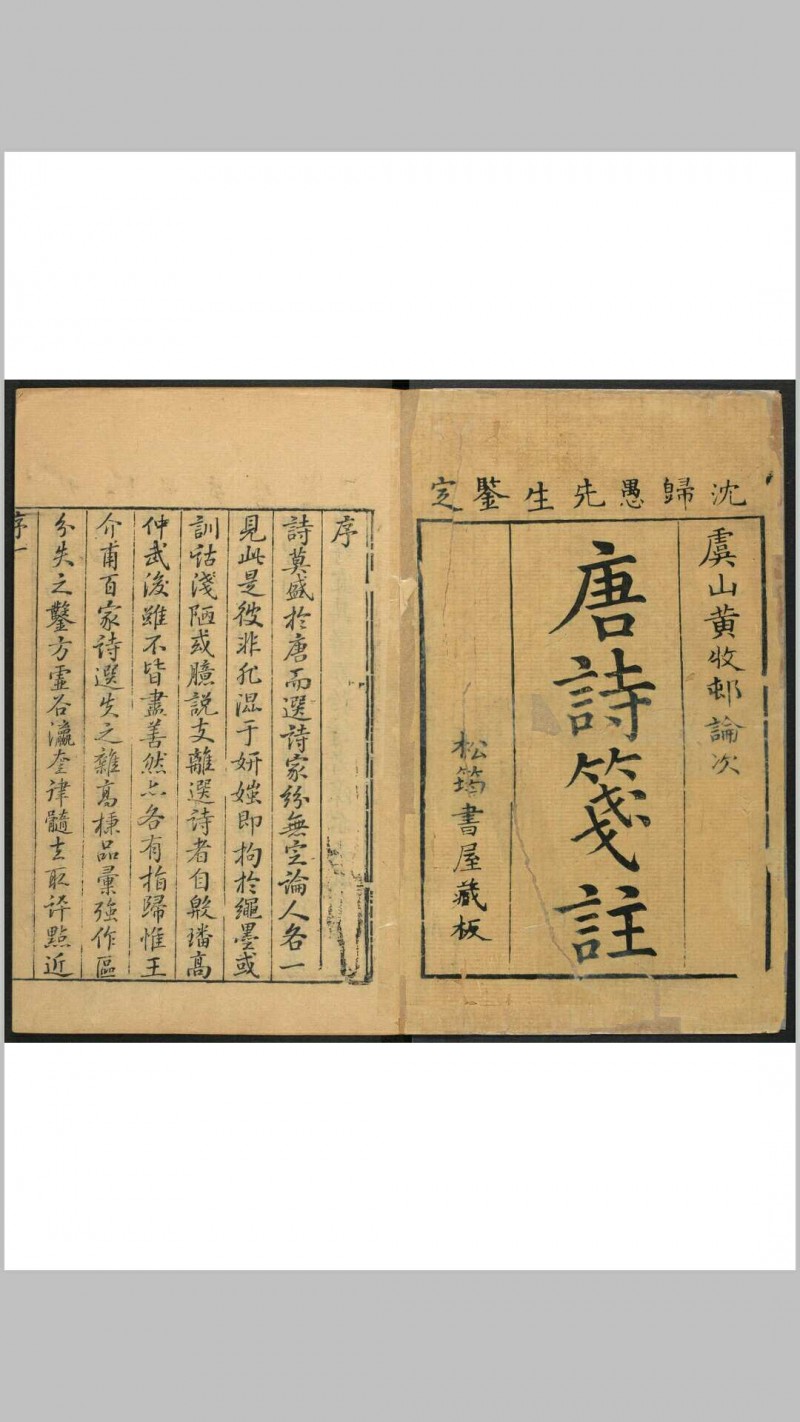 沈歸愚先生鑒定
虞山黄收邨論次
唐詩箋註
松筠書屋藏板
序
詩莫盛於唐而選詩家紛無定論人各一
見此是彼非非混于妍媸即拘於繩墨或
訓詁淺陋或臆説支離選詩者自殷璠髙
仲武後雖不皆盡善然亦各有指歸惟王
介甫百家詩選失之雜髙棅品彙強作區
分失之鑿方虚谷瀛奎律髓去取評點近
序一